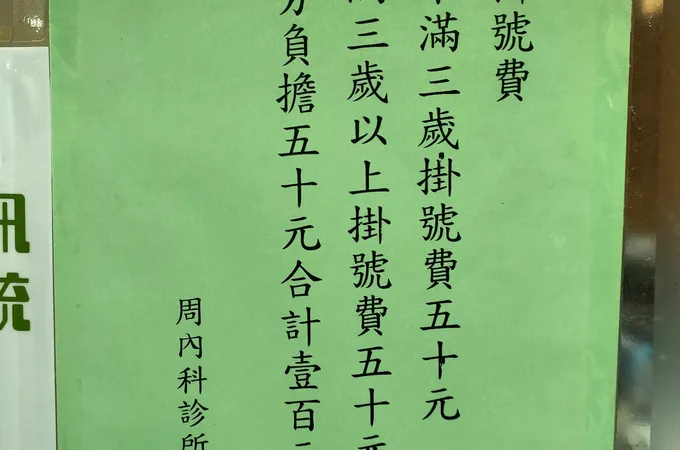 號費
滿三歲掛號費五十元
三歲以上掛號費五十元
負擔五十元合計壹百
周內科診所
訊
流